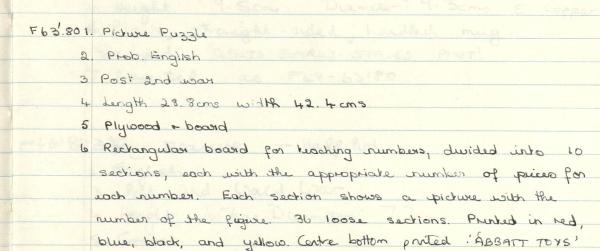 F63'.801. Picture Puzzle
2. Prob. English
3 Post 2nd war
4 Length 28.8cms width 42.4cms
5 Plywood + board
6 Rectangular board for teaching numbers, divided into 10
sections, each with the appropriate number of pieces for
each number. Each section shows a picture with the
number of the figure. 36 loose sections. Printed in red,
blue, black, and yellow. Centre bottom printed :'ABBATT TOYS'